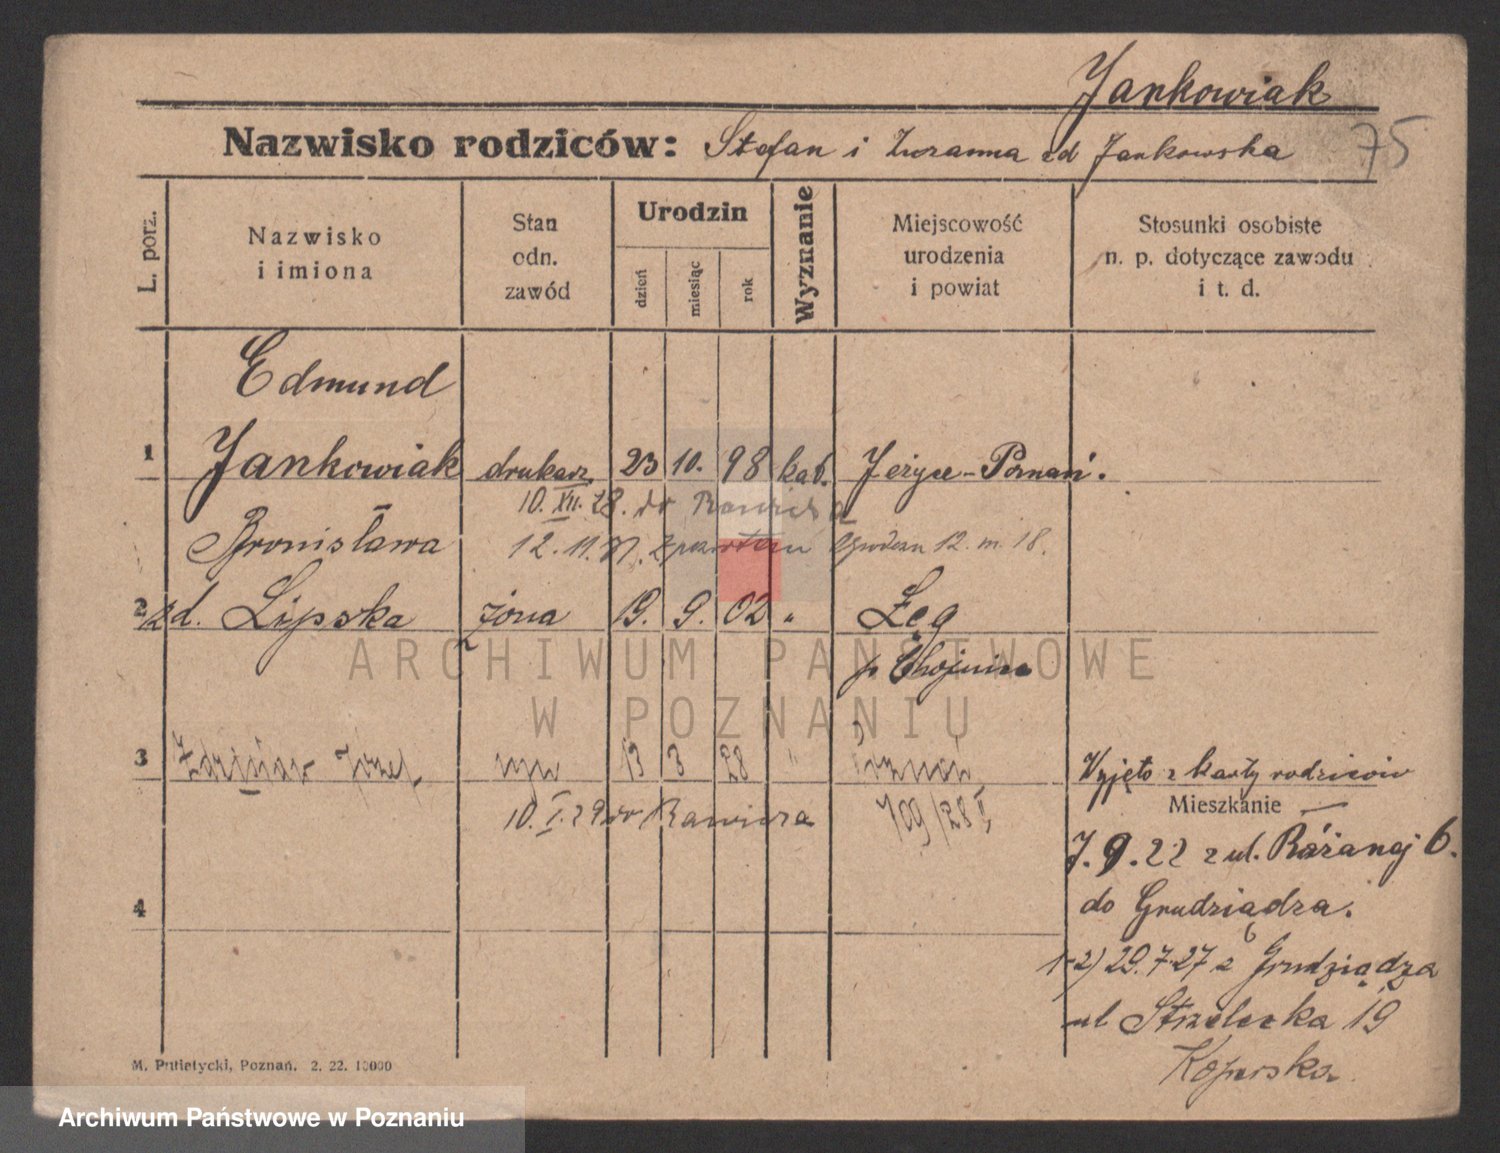 Jankowiak
Nazwisko rodziców: Stefan i Zuzanna zd Jankowska
75
L. porz.
Nazwisko
i imiona
Stan
odn.
zawód
Urodzin
dzień
miesiąc
rok
Wyznanie
Miejscowość
urodzenia
i powiat
Stosunki osobiste
n. p. dotyczące zawodu
i t. d.
Edmund
1 Jankowiak drukarz 23 10. 98 kat. Jeżyce-Poznań.
10. XII. 28. do Rawicza
Bronisława
12. 11. z powrotem 12. m. 18.
2 zd. Lipska żona 19. 9. 02 " Łęg
p. Chojnice
3 Zdzisław Józef syn 13 3 28 " Poznań
Wyjęto z karty rodziców
10. I. 29 do Rawicza 709/28 I,
Mieszkanie
7. 9. 22 z ul. Różanej 6.
do Grudziądza.
4
1-2) 29.7.27 z Grudziądza
ul Strzelecka 19
M. Putiatycki, Poznań. 2. 22. 10000
ARCHIWUM PAŃSTWOWE
W POZNANIU
Archiwum Państwowe w Poznaniu